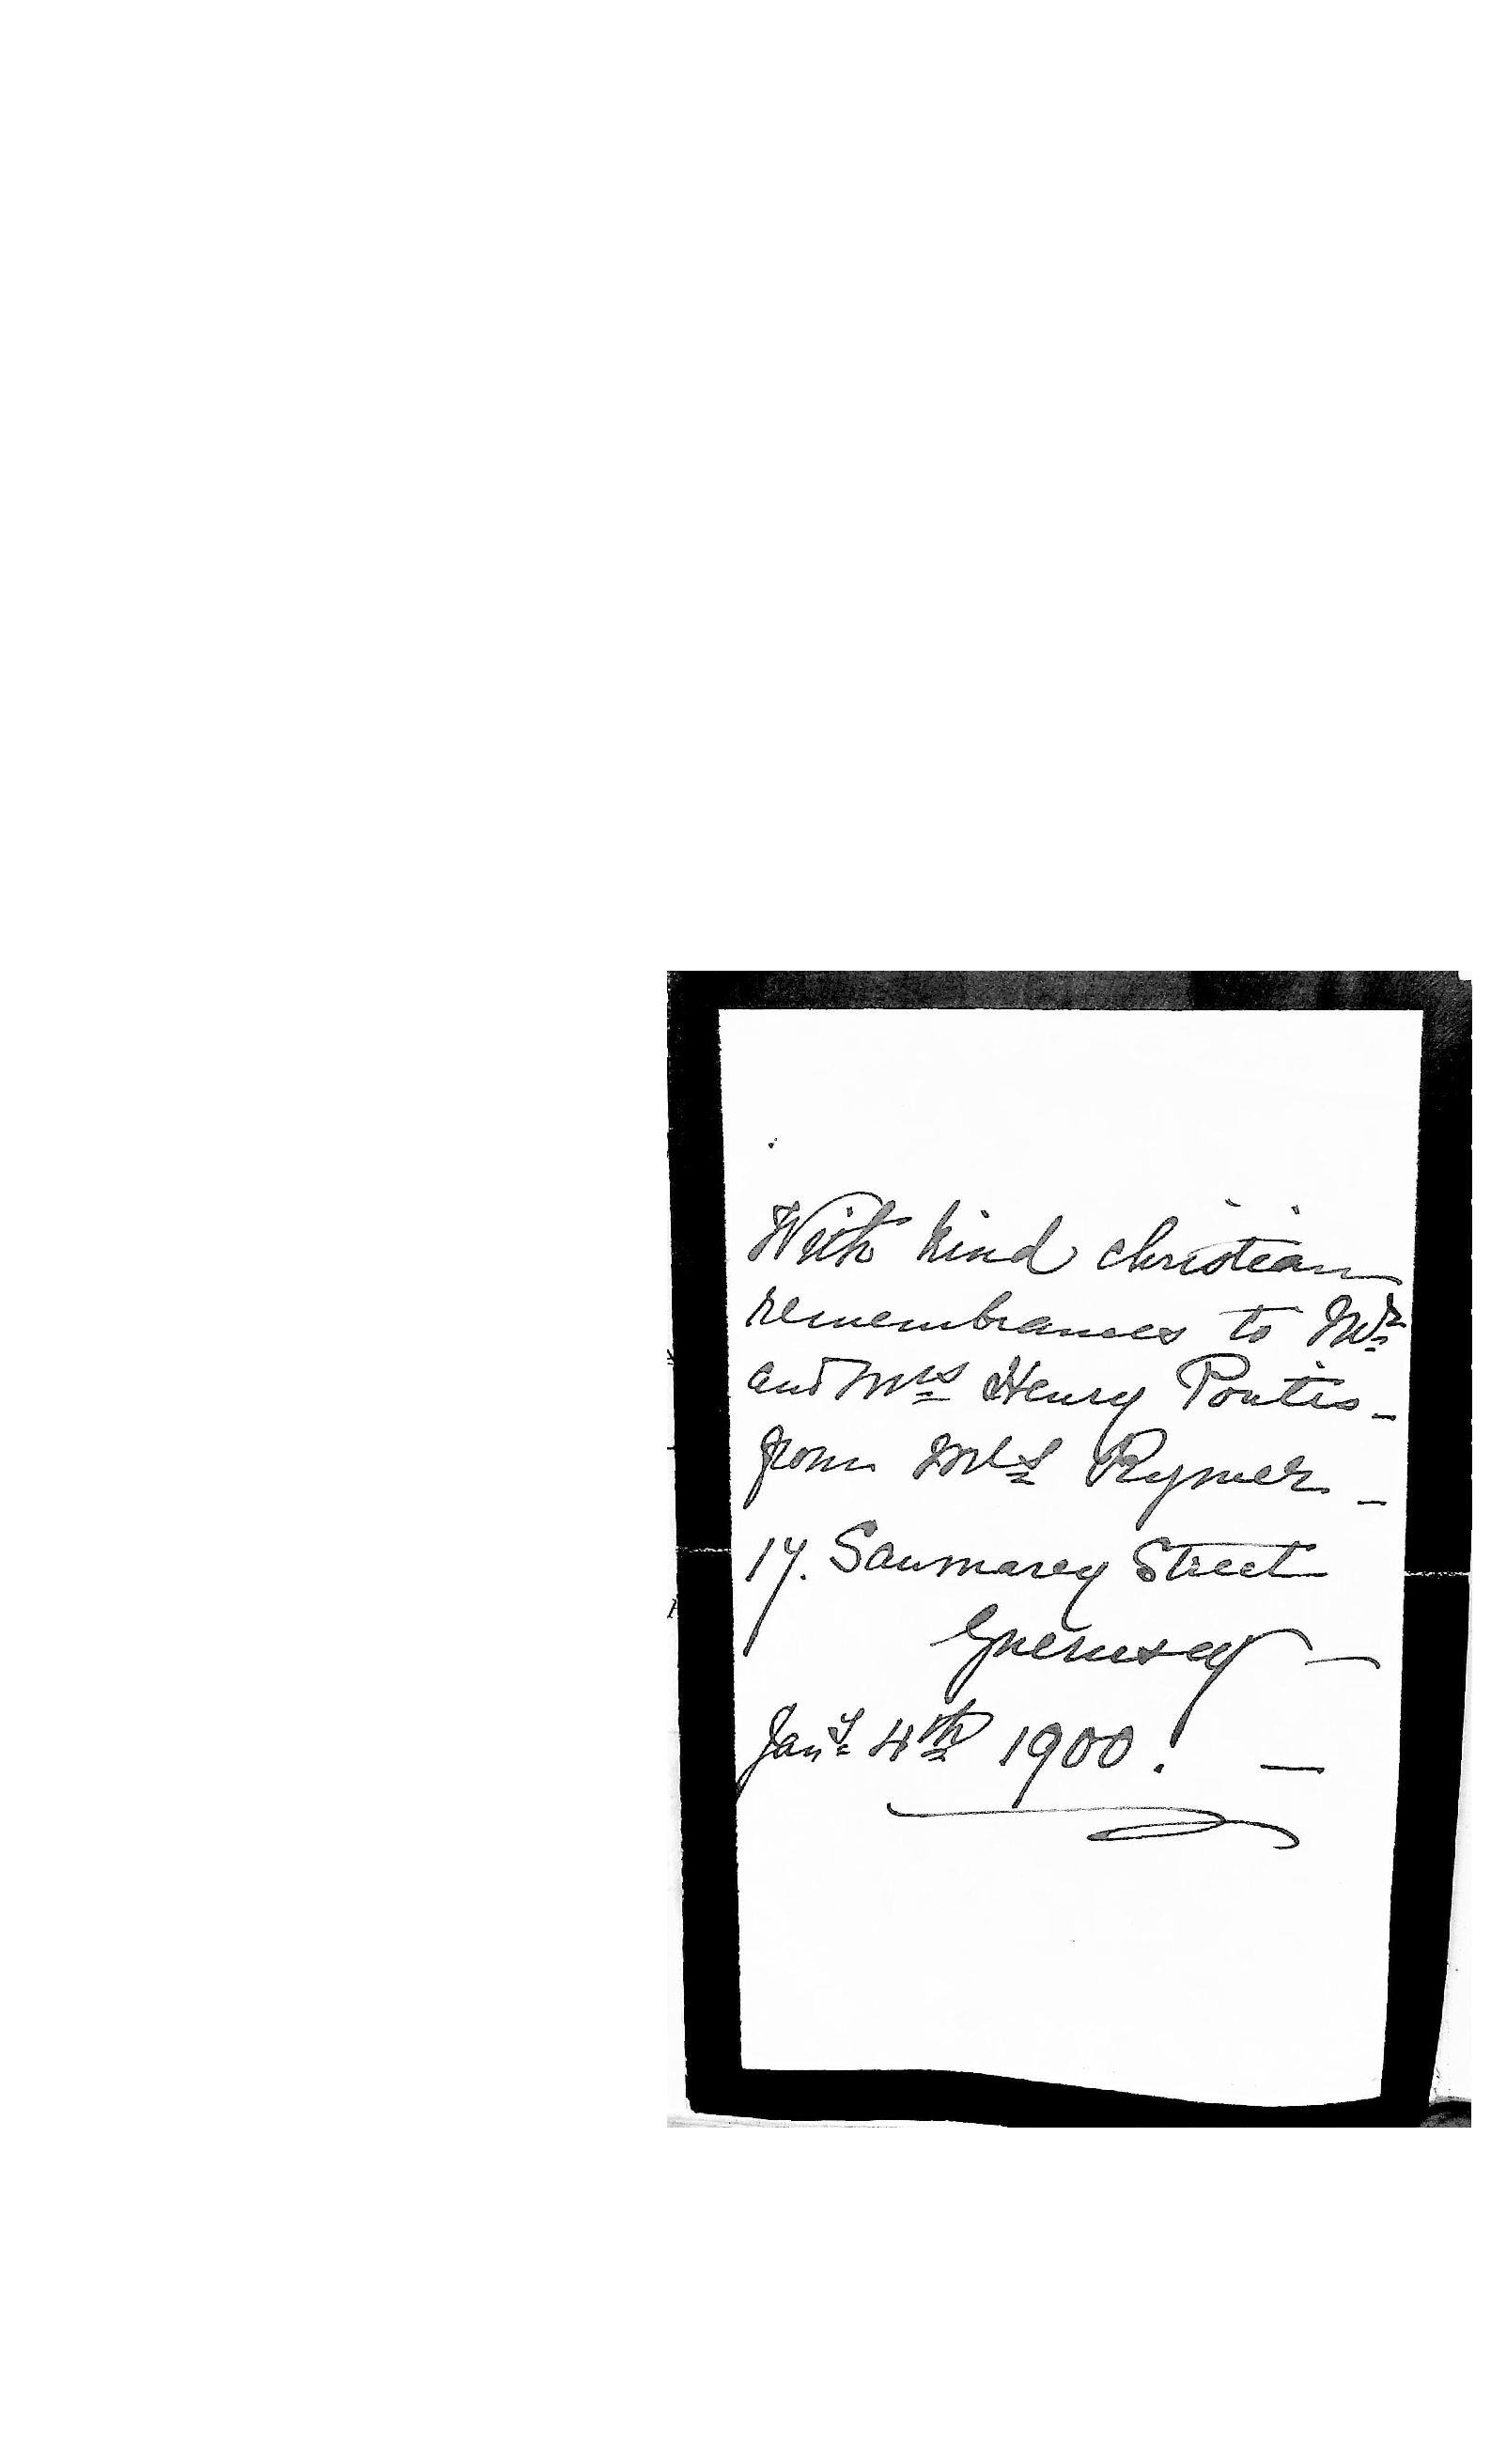 With kind christian
remembrances to Mr
and Mrs Henry Pontis -
from Mrs Rymer -
17. Saumarez Street
Guernsey -
Jany 4th 1900. -